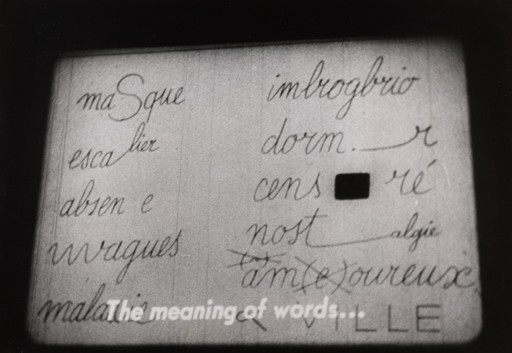 maSque
escalier
absen e
vvvagues
imbrogbrio
dorm. r
cens ré
nost algie
am(e)oureux
VILLE
The meaning of words...